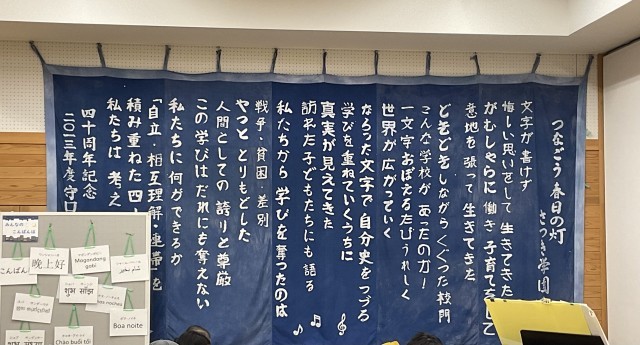 つなごう春日の灯
さつき学園
文字が書けず
悔しい思いをして 生きてきた
がむしゃらに 働き 子育てをして
意地を 張って 生きてきた
どきどきしながら くぐった 校門
こんな 学校が あったのか!
一文字 おぼえるたび うれしく
世界が 広がっていく
ならった 文字で 自分史を つづる
学びを 重ねていくうちに
真実が 見えてきた
訪れた 子どもたちにも 語る
私たちから 学びを 奪ったのは
戦争・貧困・差別
やっと とりもどした
人間としての 誇りと 尊厳
この 学びは だれにも 奪えない
私たちに 何ができるか
「自立・相互理解・連帯」を
積み重ねた 四十
私たちは 考え
四十周年記念
二〇二三年度 守口
みんなの
こんばんは
こんばん
晚上好
Magandang gabi
शुभ साँझ
शुभ
Boa noite
Chào buổi tối